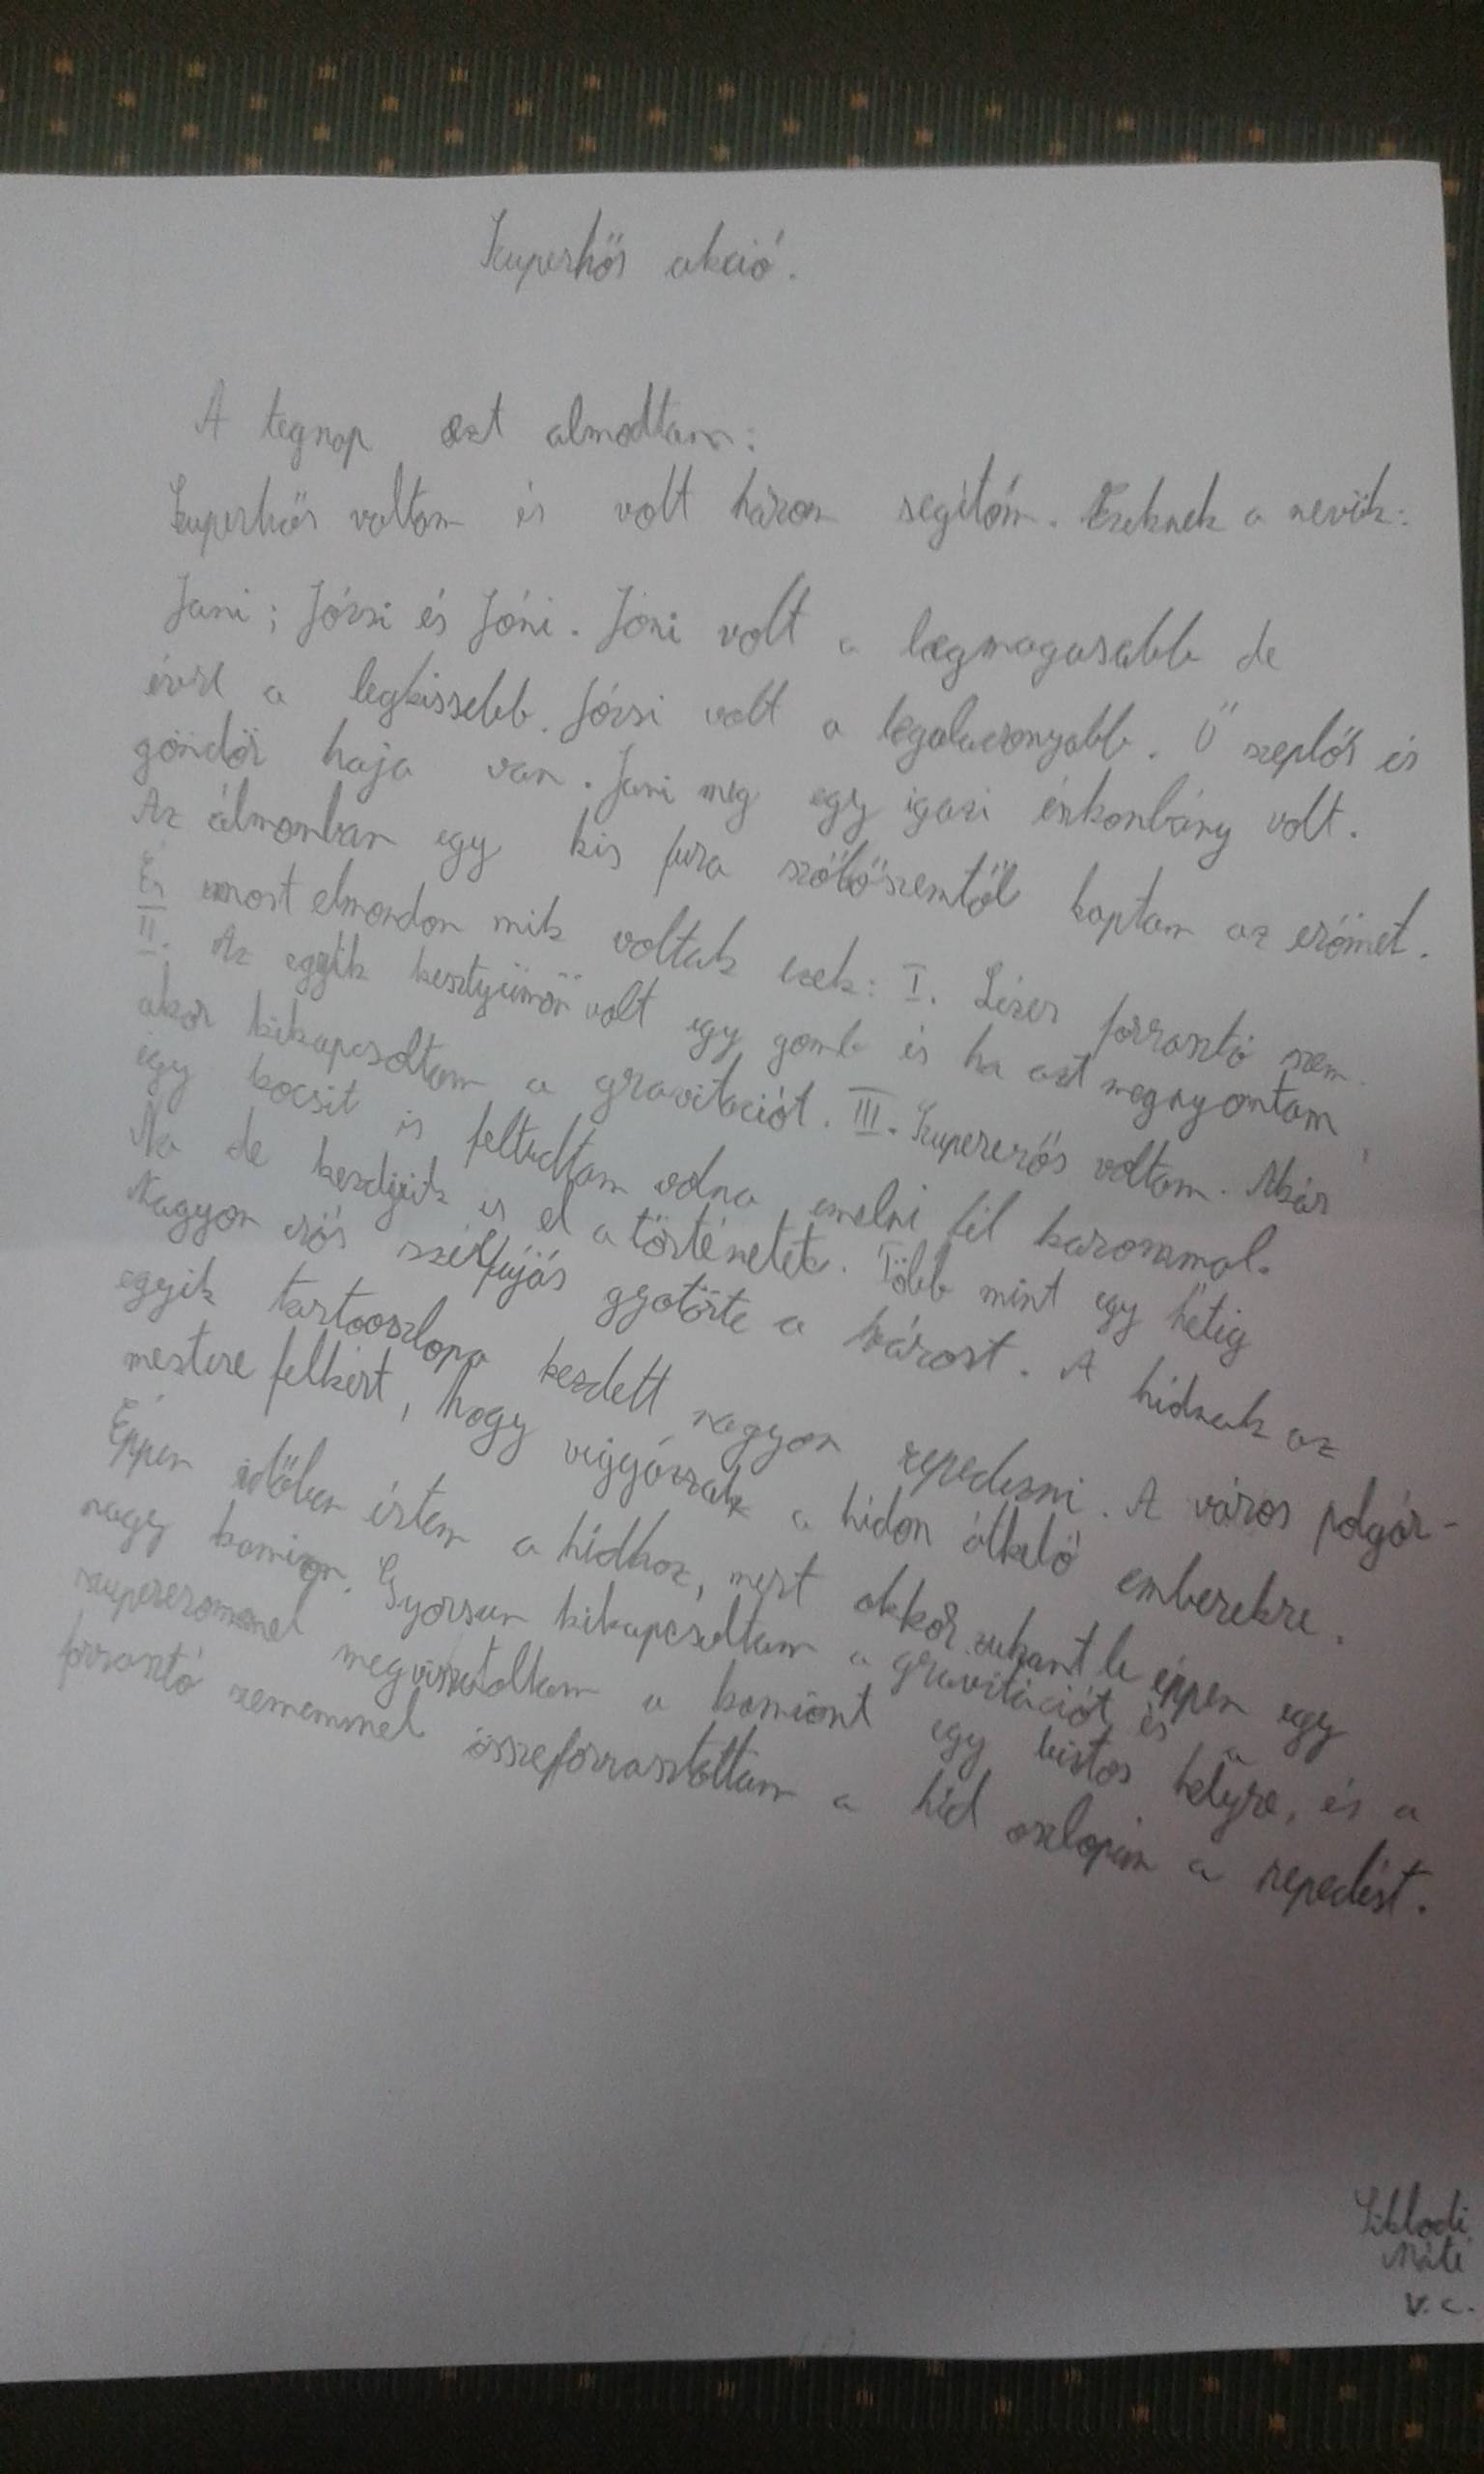 Szuperhős akció.
A tegnap ezt almodtam:
Szuperhős voltam és volt három segítőm. Ezeknek a nevük:
Jani; Józsi és Jóni. Jóni volt a legmagasabb de
évre a legkissebb. Józsi volt a legalacsonyabb. Ő szeplős és
göndör haja van. Jani meg egy igazi énkonbány volt.
Az álmomban egy kis fura szőlőszemtől koptam az erőmet.
És most elmondom mik voltak ezek: I. Lézer forrasztó szem.
II. Az egyik kesztyűmön volt egy gomb és ha azt megnyomtam,
akor kikapcsoltam a gravitációt. III. Szupererős voltam. Akár
egy kocsit is feltudtam volna emelni fél karommal.
Na de kezdjük is el a történetet. Több mint egy hétig
Nagyon erős szélfújás gyötörte a várost. A hídnak az
egyik tartooszlopa kezdett nagyon repedezni. A város polgár-
mestere felkért, hogy vigyázzak a hídon átkelő emberekre.
Éppen időben értem a hídhoz, mert akkor zuhant le éppen egy
nagy kamion. Gyorsan kikapcsoltam a gravitációt és a
szupererommel megvisszatoltam a kamiont egy biztos helyre, és a
forrasztó szememmel összeforrasztottam a híd oszlopán a repedést.
Siklodi
Máté
V. C.